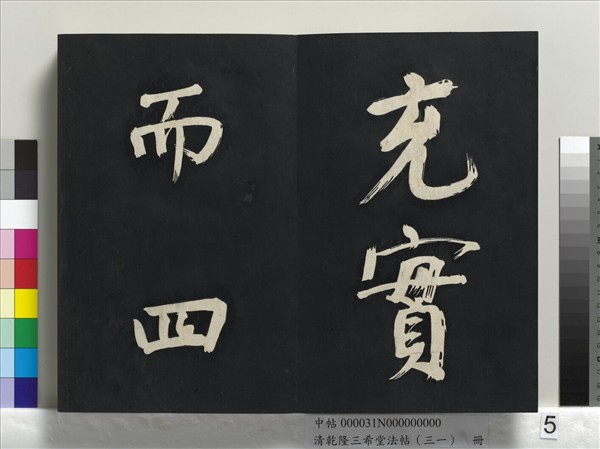 充實
而四
中帖 000031N000000000
清乾隆三希堂法帖（三一） 冊
5